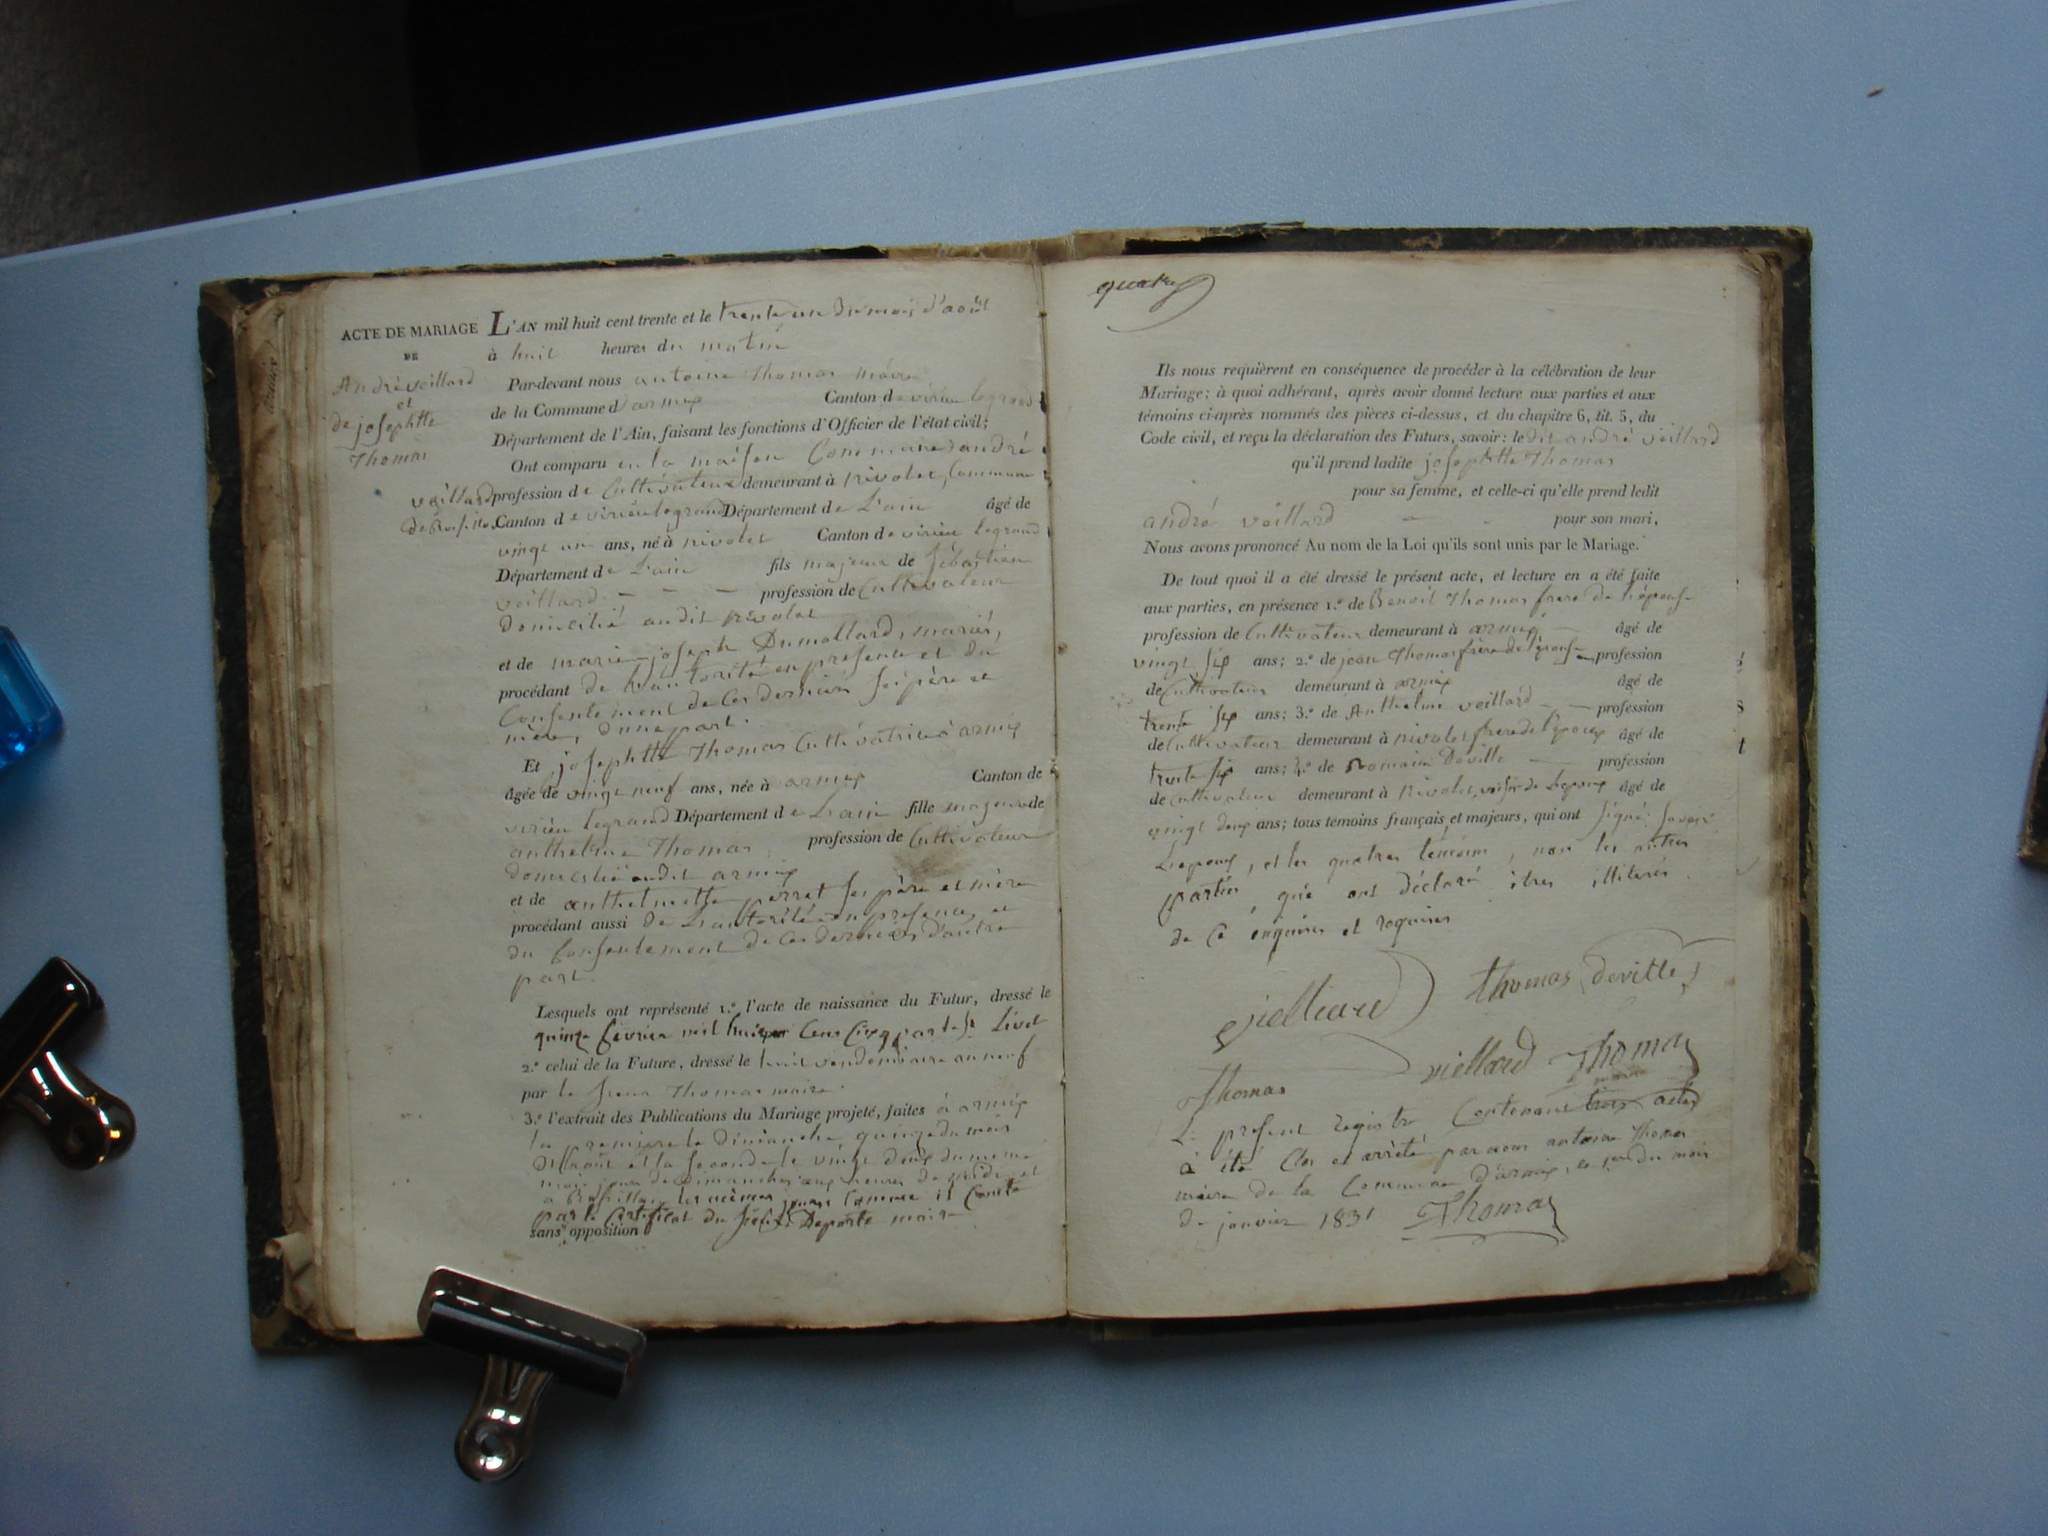 ACTE DE MARIAGE
DE
André veillard
et
de josephtte
Thomas
L'AN mil huit cent trente et le trente un du mois d'août
à huit heures du matin
Par-devant nous antoine Thomas maire
de la Commune d'armix Canton de virieu legrand
Département de l'Ain, faisant les fonctions d'Officier de l'état civil;
Ont comparu en la maison Commune andré
veillard profession de Cultivateur demeurant à nivolet, Commune
Canton de virieu legrand Département de L'ain âgé de
vingt un ans, né à nivolet Canton de virieu legrand
Département de L'ain fils majeur de Sébastien
veillard profession de Cultivateur
domicilié audit nivolet
et de marie-joseph Dumollard, mariés,
procédant de L'autorité en presence et du
Consentement de Ces derniers Ses père et
mère, d'une part.
Et josephtte Thomas Cultivatrice à armix
âgée de vingt neuf ans, née à armix Canton de
virieu legrand Département de L'ain fille majeure de
anthelme Thomas profession de Cultivateur
domicilié audit armix
et de anthelmette perret Ses père et mère
procédant aussi de L'autorité en presence et
du Consentement de Ces derniers d'autre
part.
Lesquels ont représenté 1.º l'acte de naissance du Futur, dressé le
quinze février mil huit Cent Cinq par le Sr Livet
2.º celui de la Future, dressé le huit vendemiaire an neuf
par le Sieur Thomas maire.
3.º l'extrait des Publications du Mariage projeté, faites à armix
la premiere le Dimanche, quinze du mois
D'août et la Seconde le vingt deux du meme
mois jours de Dimanches aux heures de midi et
à les mêmes jours Comme il Conste
par le Certificat du Deporte maire
sans opposition
quatre
Ils nous requièrent en conséquence de procéder à la célébration de leur
Mariage; à quoi adhérant, après avoir donné lecture aux parties et aux
témoins ci-après nommés des pièces ci-dessus, et du chapitre 6, tit. 5, du
Code civil, et reçu la déclaration des Futurs, savoir: le dit andré veillard
qu'il prend ladite josephtte Thomas
pour sa femme, et celle-ci qu'elle prend ledit
andré veillard pour son mari,
Nous avons prononcé Au nom de la Loi qu'ils sont unis par le Mariage.
De tout quoi il a été dressé le présent acte, et lecture en a été faite
aux parties, en présence 1.º de Benoit Thomas frere de L'épouse
profession de Cultivateur demeurant à armix âgé de
vingt six ans; 2.º de jean Thomas frère de l'épouse profession
de Cultivateur demeurant à armix âgé de
trente six ans; 3.º de Anthelme veillard profession
de Cultivateur demeurant à nivolet frere de l'époux âgé de
trente six ans; 4.º de Romain Deville profession
de Cultivateur demeurant à nivolet, voisin de L'epoux âgé de
vingt deux ans; tous témoins français et majeurs, qui ont signé; Savoir
L'epoux, et les quatres temoins, non les autres
parties qui ont déclaré être illiterés
de Ce enquises et requises
vielliard Thomas deville
Thomas viellard Thomas
maire
Le present registre Contenant trois actes
à été Clos et arrêté par nous antoine Thomas
maire de la Commune d'armix, le 1er du mois
de janvier 1831 Thomas